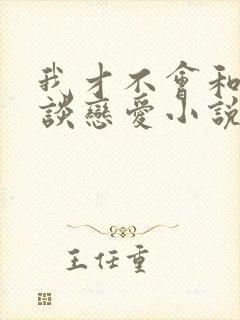 我才不會和
談戀愛小說
王任重